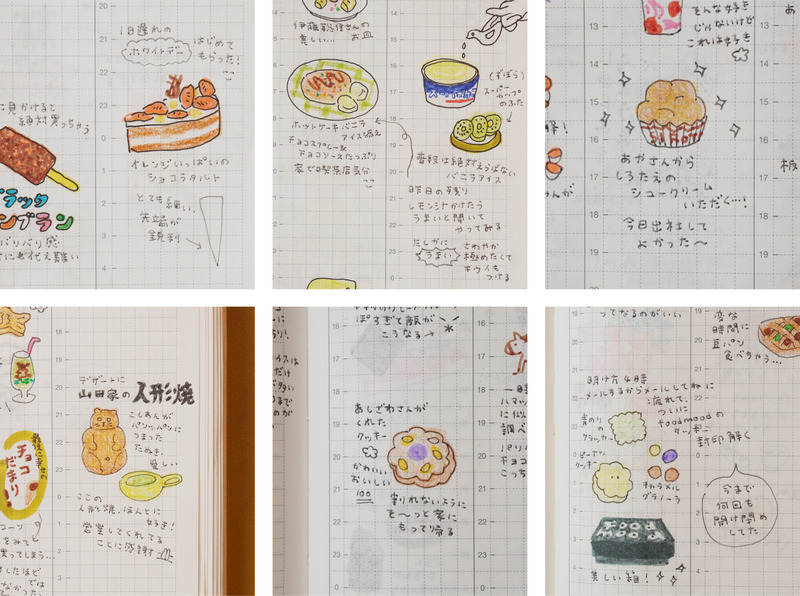 1日遅れの
ホワイトデー
はじめて
もらった!
絶対買っちゃう
オレンジいっぱいの
ショコラタルト
とても細い、
先端が
鋭利
ブラック
ンブラン
バリバリ感
伊藤若冲さんの
美しい…お皿
ホットケーキ バニラ
アイス添え
チョコスプレー&
チョコソースたっぷり
家ゼロ喫茶店気分
(ずぼら)
スーパー
カップの
ふた
普段は絶対えらばない
バニラアイス
昨日の残り
レモン汁かけたら
うまいと聞いて
やってみる
たしかに
うまい
さわやか
極めたくて
キウイも
つける
そんな好き
じゃないけど
これは好き
あやさんから
しろたえの
シュークリーム
いただく…!
今日出社して
よかった〜
デザートに
山田家の人形焼
こしあんが
パンッパンに
つまった
たぬき、
愛しい
最後に幸せの
チョコ
だまり
ここの
人形焼、ほんとに
好き!
営業してくれてる
ことに感謝
買ってしまう…
ぽすぎて敵が
こうなる→
あしざわさんが
くれた
クッキー
かわいい
おいしい
100
割れないように
そ〜っと家に
もって帰る
ってなるのがいい
変な
時間に
豆パン
食べちゃう…
明け方4時
メールするからメールしてねに
疲れて、
ついに
foodmoodの
クッキー
封印解く
青のり
クラッカー
ピーナッツ
クッキー
キャラメル
グラノーラ
美しい箱!
今まで
何回も
開け閉め
してた